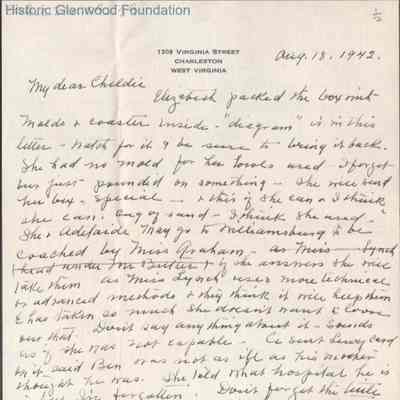 Historic Glenwood Foundation
1/2
1309 VIRGINIA STREET
CHARLESTON
WEST VIRGINIA
Aug. 18, 1942.
My dear Childie
Elizabeth packed the box with
molds & coaster inside - "diagram" is in this
letter - watch for it & be sure to bring it back.
She had no mold for her bowls used I forget
but just pounded on something - She will send
her boy - special - & this if she can & I think
she can. bag of sand - I think she used -
She & Adelaide may go to Williamsburg to be
coached by Miss Graham - as Miss Lynch
had under Mr. Butler & if she answers she will
take them as Miss Lynch uses more technical
or advanced methods & they think it will help them
& has taken so much she doesn't want to
over that. Don't say anything about it - Sounds
as if she was not capable. card
said Ben was not as ill as his mother
thought he was. She told what hospital he is
in I've forgotten. Don't forget the little